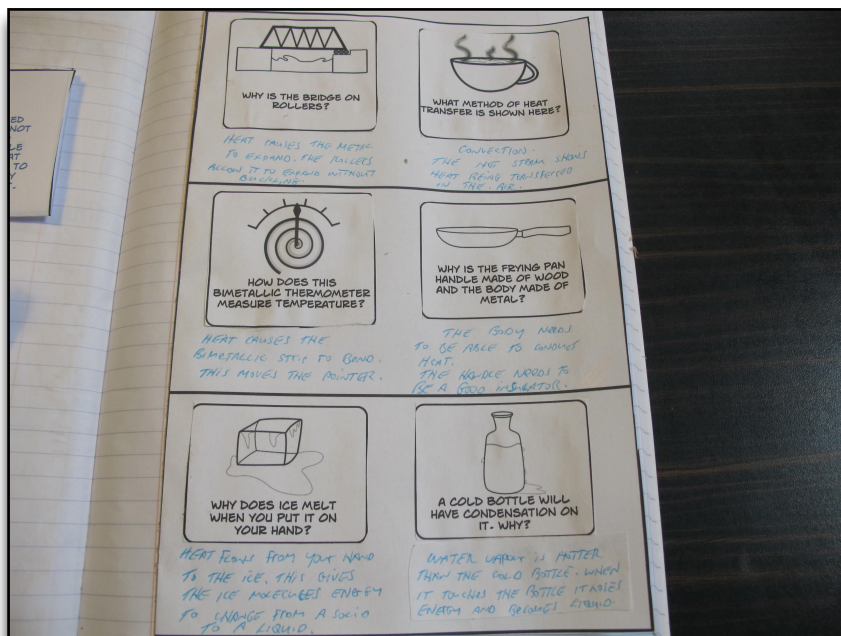 ED
NOT
LE
AT
TO
Y
WHY IS THE BRIDGE ON
ROLLERS?
HEAT CAUSES THE METAL
TO EXPAND. THE ROLLERS
ALLOW IT TO EXPAND WITHOUT
BUCKLING.
WHAT METHOD OF HEAT
TRANSFER IS SHOWN HERE?
CONVECTION.
THE HOT STEAM SHOWS
HEAT BEING TRANSFERRED
IN THE AIR.
HOW DOES THIS
BIMETALLIC THERMOMETER
MEASURE TEMPERATURE?
HEAT CAUSES THE
BIMETALLIC STRIP TO BEND.
THIS MOVES THE POINTER.
WHY IS THE FRYING PAN
HANDLE MADE OF WOOD
AND THE BODY MADE OF
METAL?
THE BODY NEEDS
TO BE ABLE TO CONDUCT
HEAT.
THE HANDLE NEEDS TO
BE A GOOD INSULATOR.
WHY DOES ICE MELT
WHEN YOU PUT IT ON
YOUR HAND?
HEAT FLOWS FROM YOUR HAND
TO THE ICE. THIS GIVES
THE ICE MOLECULES ENERGY
TO CHANGE FROM A SOLID
TO A LIQUID.
A COLD BOTTLE WILL
HAVE CONDENSATION ON
IT. WHY?
WATER VAPOUR IS HOTTER
THAN THE COLD BOTTLE. WHEN
IT TOUCHES THE BOTTLE IT LOSES
ENERGY AND BECOMES LIQUID.